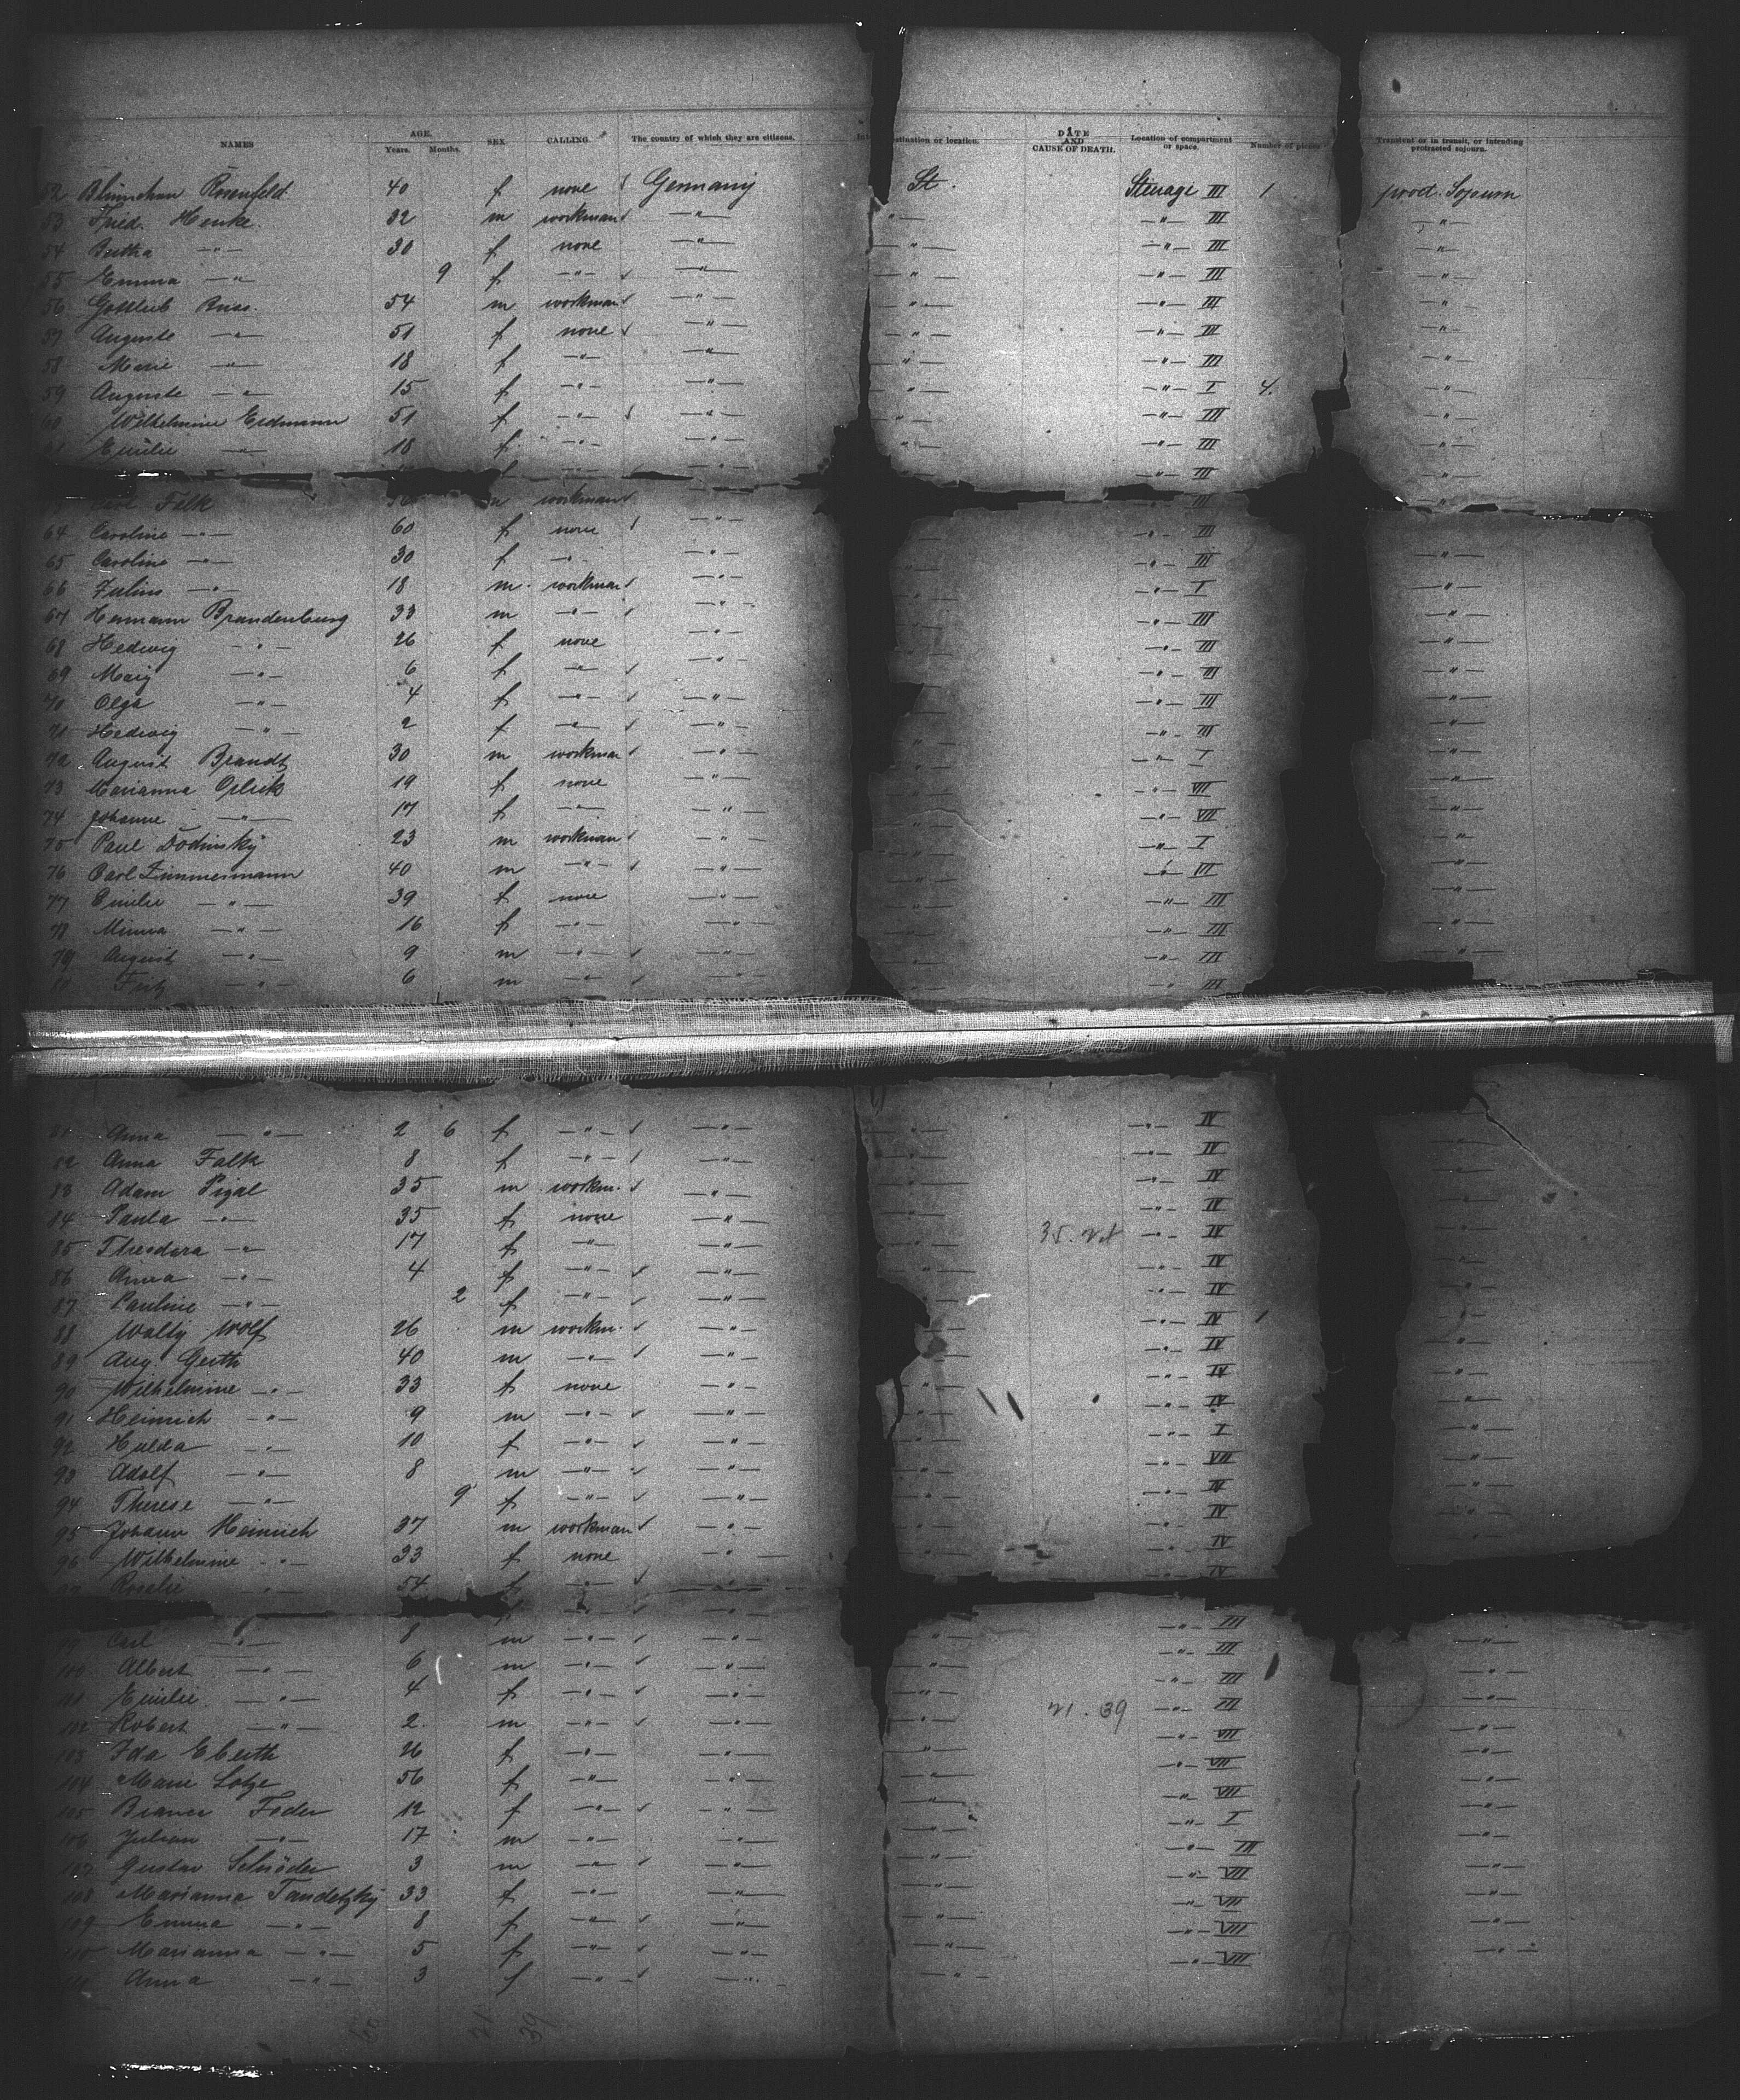 NAMES AGE. Years. Months. SEX CALLING The country of which they are citizens. destination or location. DATE AND CAUSE OF DEATH. Location of compartment or space. Number of pieces Transient or in transit, or intending protracted sojourn.
52 Rosenfeld 40 f none Germany St. Steerage III 1 prot. Sojourn
53 Fried. Henke 32 m workman -"- -"- -"- III -"-
54 Bertha -"- 30 f none -"- -"- -"- III -"-
55 Emma -"- 9 f -"- -"- -"- -"- III -"-
56 Gottlieb Buss. 54 m workman -"- -"- -"- III -"-
57 Auguste -"- 51 f none -"- -"- -"- III -"-
58 Marie -"- 18 f -"- -"- -"- -"- III -"-
59 Auguste -"- 15 f -"- -"- -"- -"- I 4. -"-
60 Wilhelmine Erdmann 51 f -"- -"- -"- -"- III -"-
61 Emilie -"- 18 f -"- -"- -"- III -"-
-"- III -"-
Falk m workman -"- III
64 Caroline -"- 60 f none -"- -"- III
65 Caroline -"- 30 f -"- -"- -"- III -"-
66 Julius -"- 18 m workman -"- -"- I -"-
67 Hermann Brandenburg 33 m -"- -"- -"- III -"-
68 Hedwig -"- 26 f none -"- -"- III -"-
69 Mary -"- 6 f -"- -"- -"- III -"-
70 Olga -"- 4 f -"- -"- -"- III -"-
71 Hedwig -"- 2 f -"- -"- -"- III -"-
72 August Brandt 30 m workman -"- -"- I -"-
73 Marianna 19 f none -"- -"- VII -"-
74 Johanne -"- 17 f -"- -"- -"- VII -"-
75 Paul Dodinsky 23 m workman -"- -"- I -"-
76 Carl Zimmermann 40 m -"- -"- -"- III -"-
77 Emilie -"- 39 f none -"- -"- III -"-
78 Minna -"- 16 f -"- -"- -"- III -"-
79 August -"- 9 m -"- -"- -"- III -"-
80 Fritz -"- 6 m -"- -"- -"- III
81 Anna -"- 2 6 f -"- -"- -"- IV
82 Anna Falk 8 f -"- -"- -"- IV
83 Adam Pigal 35 m workm. -"- -"- IV
84 Paula -"- 35 f none -"- -"- IV
85 Theodora -"- 17 f -"- -"- 35. -"- IV
86 Anna -"- 4 f -"- -"- -"- IV
87 Pauline -"- 2 f -"- -"- -"- IV
88 Wolf 26 m workm. -"- -"- IV 1
89 Aug. Gerth 40 m -"- -"- -"- IV
90 Wilhelmine -"- 33 f none -"- -"- IV
91 Heinrich -"- 9 m -"- -"- -"- IV
92 Hulda -"- 10 f -"- -"- -"- I
93 Adolf -"- 8 m -"- -"- -"- VII
94 Therese -"- 9 f -"- -"- -"- IV
95 Johann Heinrich 37 m workman -"- -"- IV
96 Wilhelmine -"- 33 f none -"- -"- IV
97 Rosalie -"- 54 f -"- -"- -"- IV
99 Carl -"- 8 m -"- -"- -"- III -"-
100 Albert -"- 6 m -"- -"- -"- III -"-
101 Emilie -"- 4 f -"- -"- -"- III -"-
102 Robert -"- 2 m -"- -"- 21. 39 -"- III -"-
103 Ida Eberth 26 f -"- -"- -"- VII -"-
104 Marie Lotze 56 f -"- -"- -"- VII -"-
105 Foder 12 f -"- -"- -"- VII -"-
106 Julian -"- 17 m -"- -"- -"- I -"-
107 Gustav Schröder 3 m -"- -"- -"- III -"-
108 Marianna Tandetzky 33 f -"- -"- -"- VII -"-
109 Emma -"- 8 f -"- -"- -"- VII -"-
110 Marianna -"- 5 f -"- -"- -"- VIII -"-
111 Anna -"- 3 f -"- -"- -"- VIII
21 39